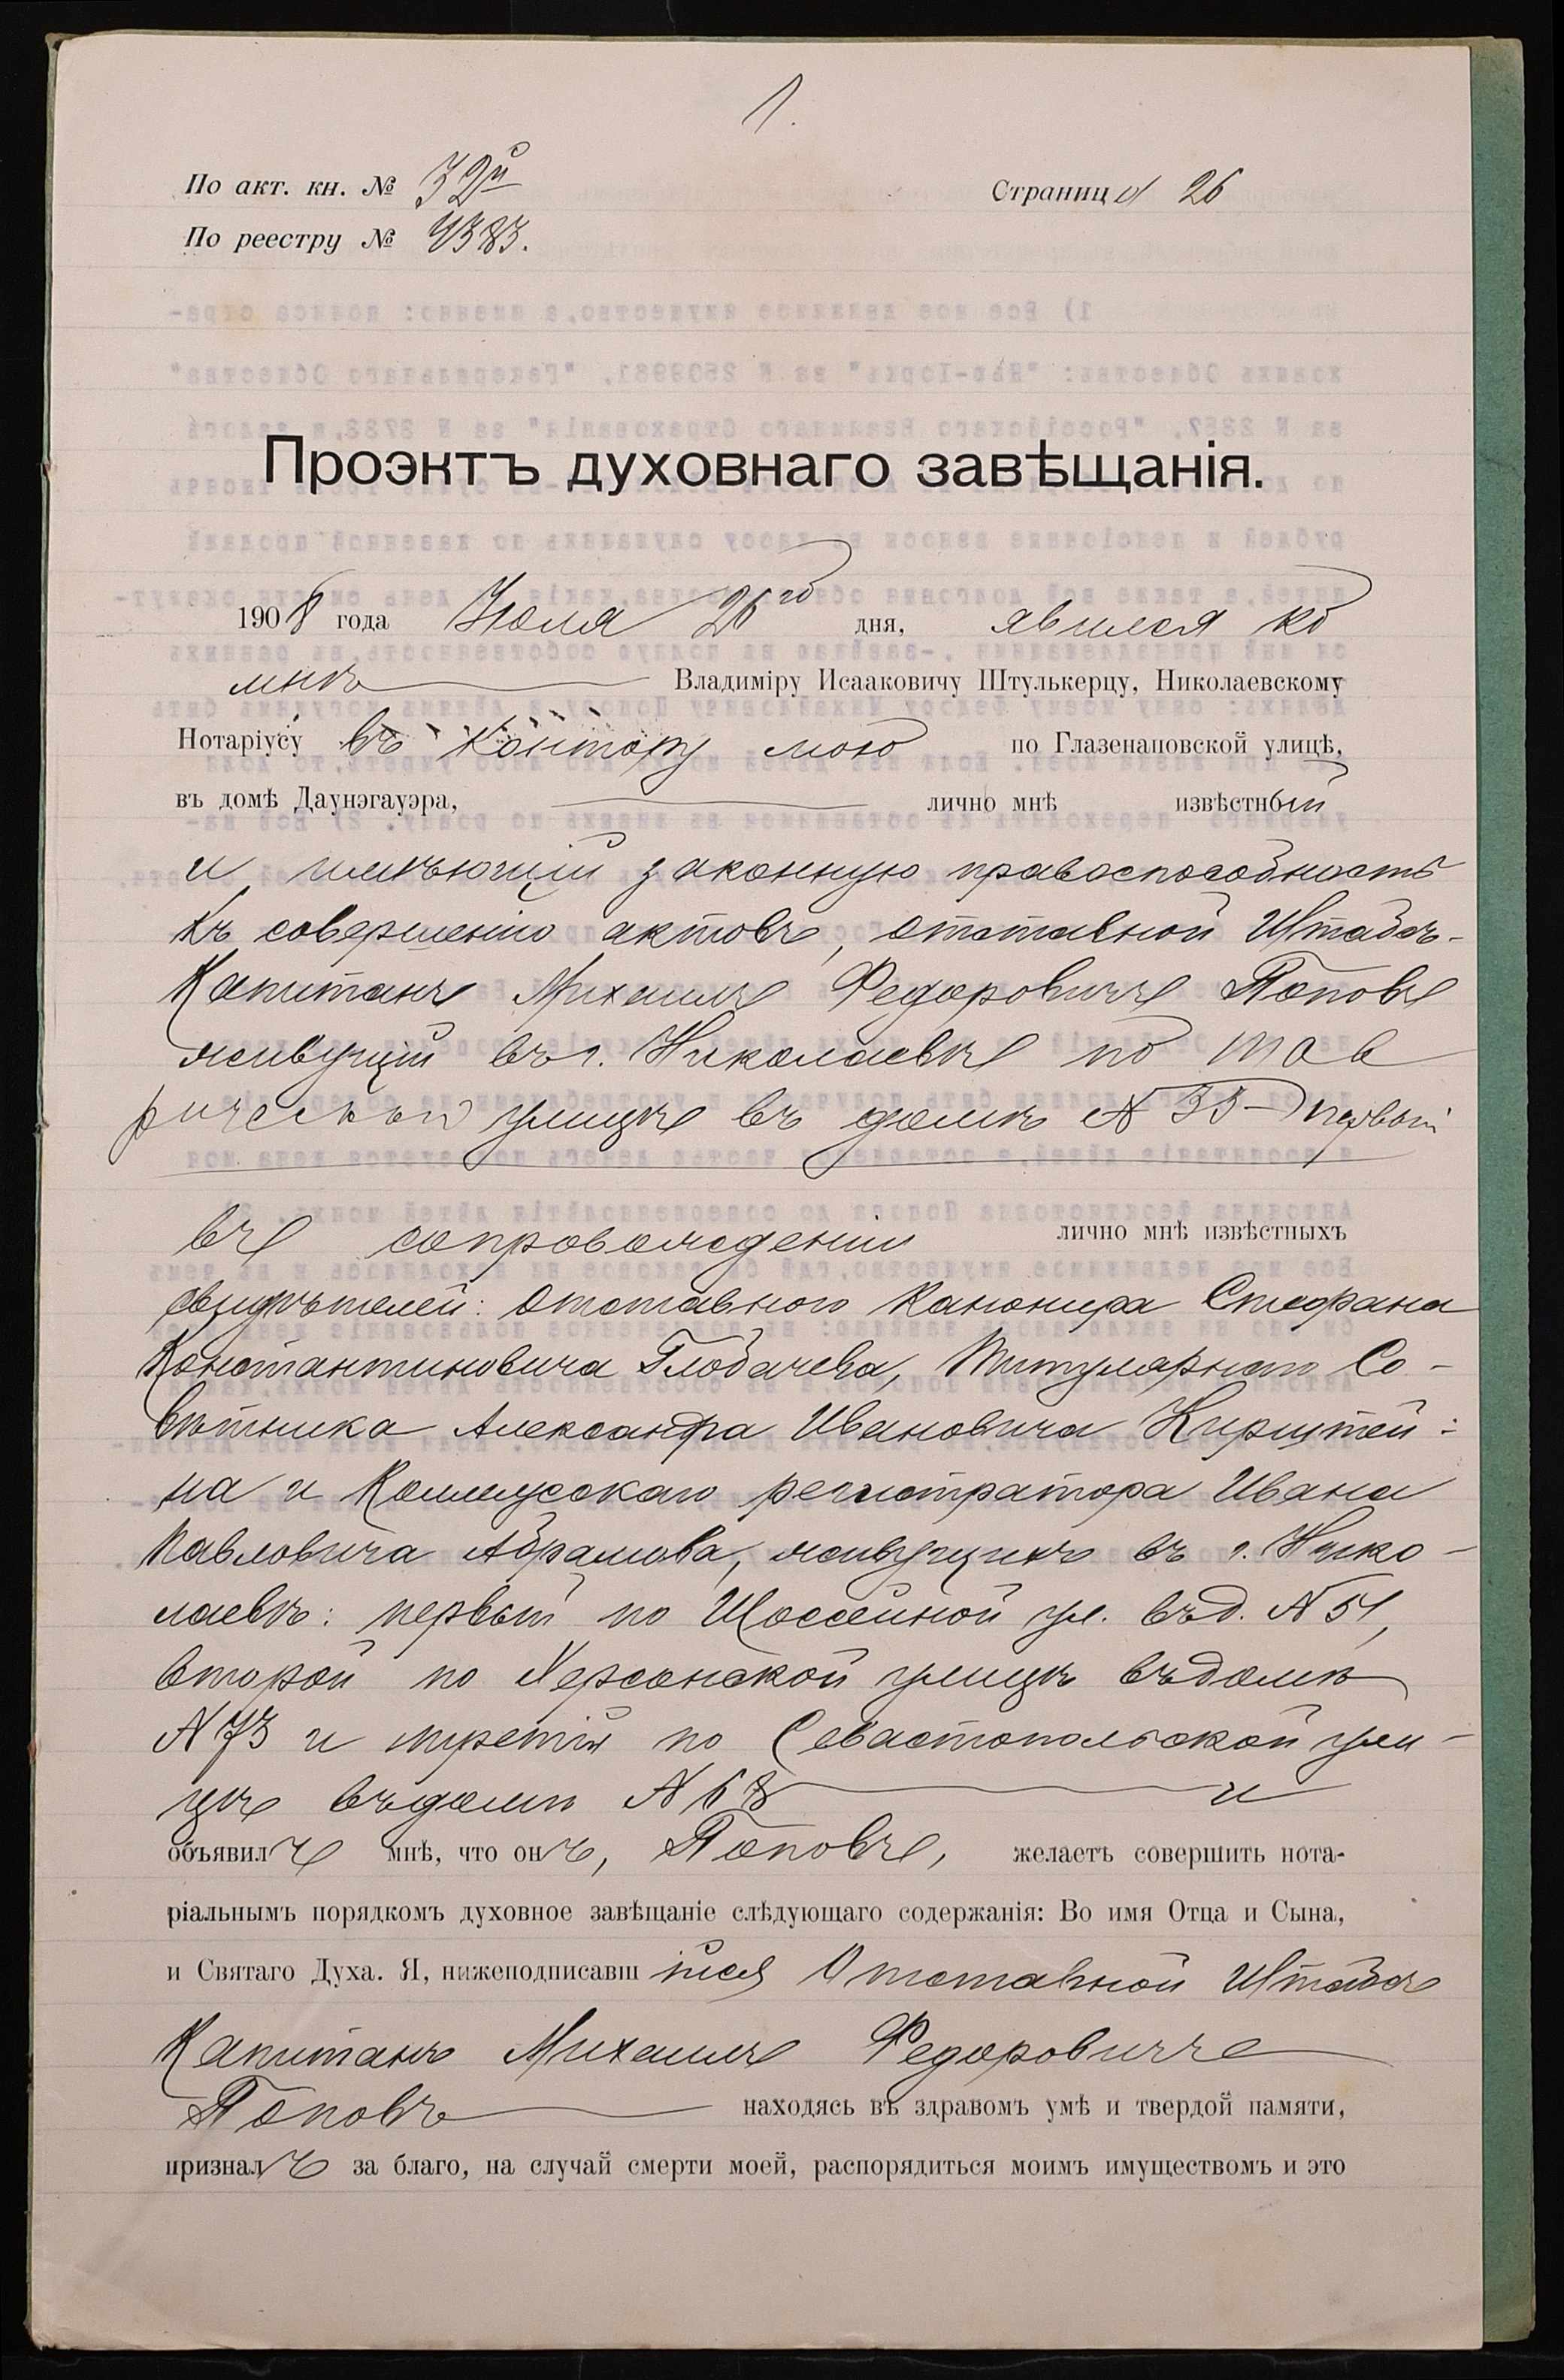 1.
По акт. кн. № 32й
Страницы 26
По реестру № 4383.
Проэктъ духовнаго завѣщанія.
1908 года Іюля 26го дня, явился ко
мнѣ Владиміру Исааковичу Штулькерцу, Николаевскому
Нотаріусу въ контору мою по Глазенаповской улицѣ,
въ домѣ Даунэгауэра, лично мнѣ извѣстный
и имѣющій законную правоспособность
къ совершенію актовъ, отставной Штабсъ-
Капитанъ Михаилъ Федоровичъ Поповъ
живущій въ г. Николаевѣ по Тав
рической улицѣ въ домѣ № 33 первый
въ сопровожденіи лично мнѣ извѣстныхъ
свидѣтелей: отставного Канонира Стефана
Константиновича Глобачева, Титулярнаго Со-
вѣтника Александра Ивановича Кирштей-
на и Коллежскаго регистратора Ивана
Павловича Абрамова, живущихъ въ г. Нико-
лаевѣ: первый по Шоссейной ул. въ д. № 51,
второй по Херсонской улицѣ въ домѣ
№ 73 и третій по Севастопольской ули-
цѣ въ домѣ № 68 и
объявилъ мнѣ, что онъ, Поповъ, желаетъ совершить нота-
ріальнымъ порядкомъ духовное завѣщаніе слѣдующаго содержанія: Во имя Отца и Сына,
и Святаго Духа. Я, нижеподписавшійся Отставной Штабсъ
Капитанъ Михаилъ Федоровичъ
Поповъ находясь въ здравомъ умѣ и твердой памяти,
призналъ за благо, на случай смерти моей, распорядиться моимъ имуществомъ и это